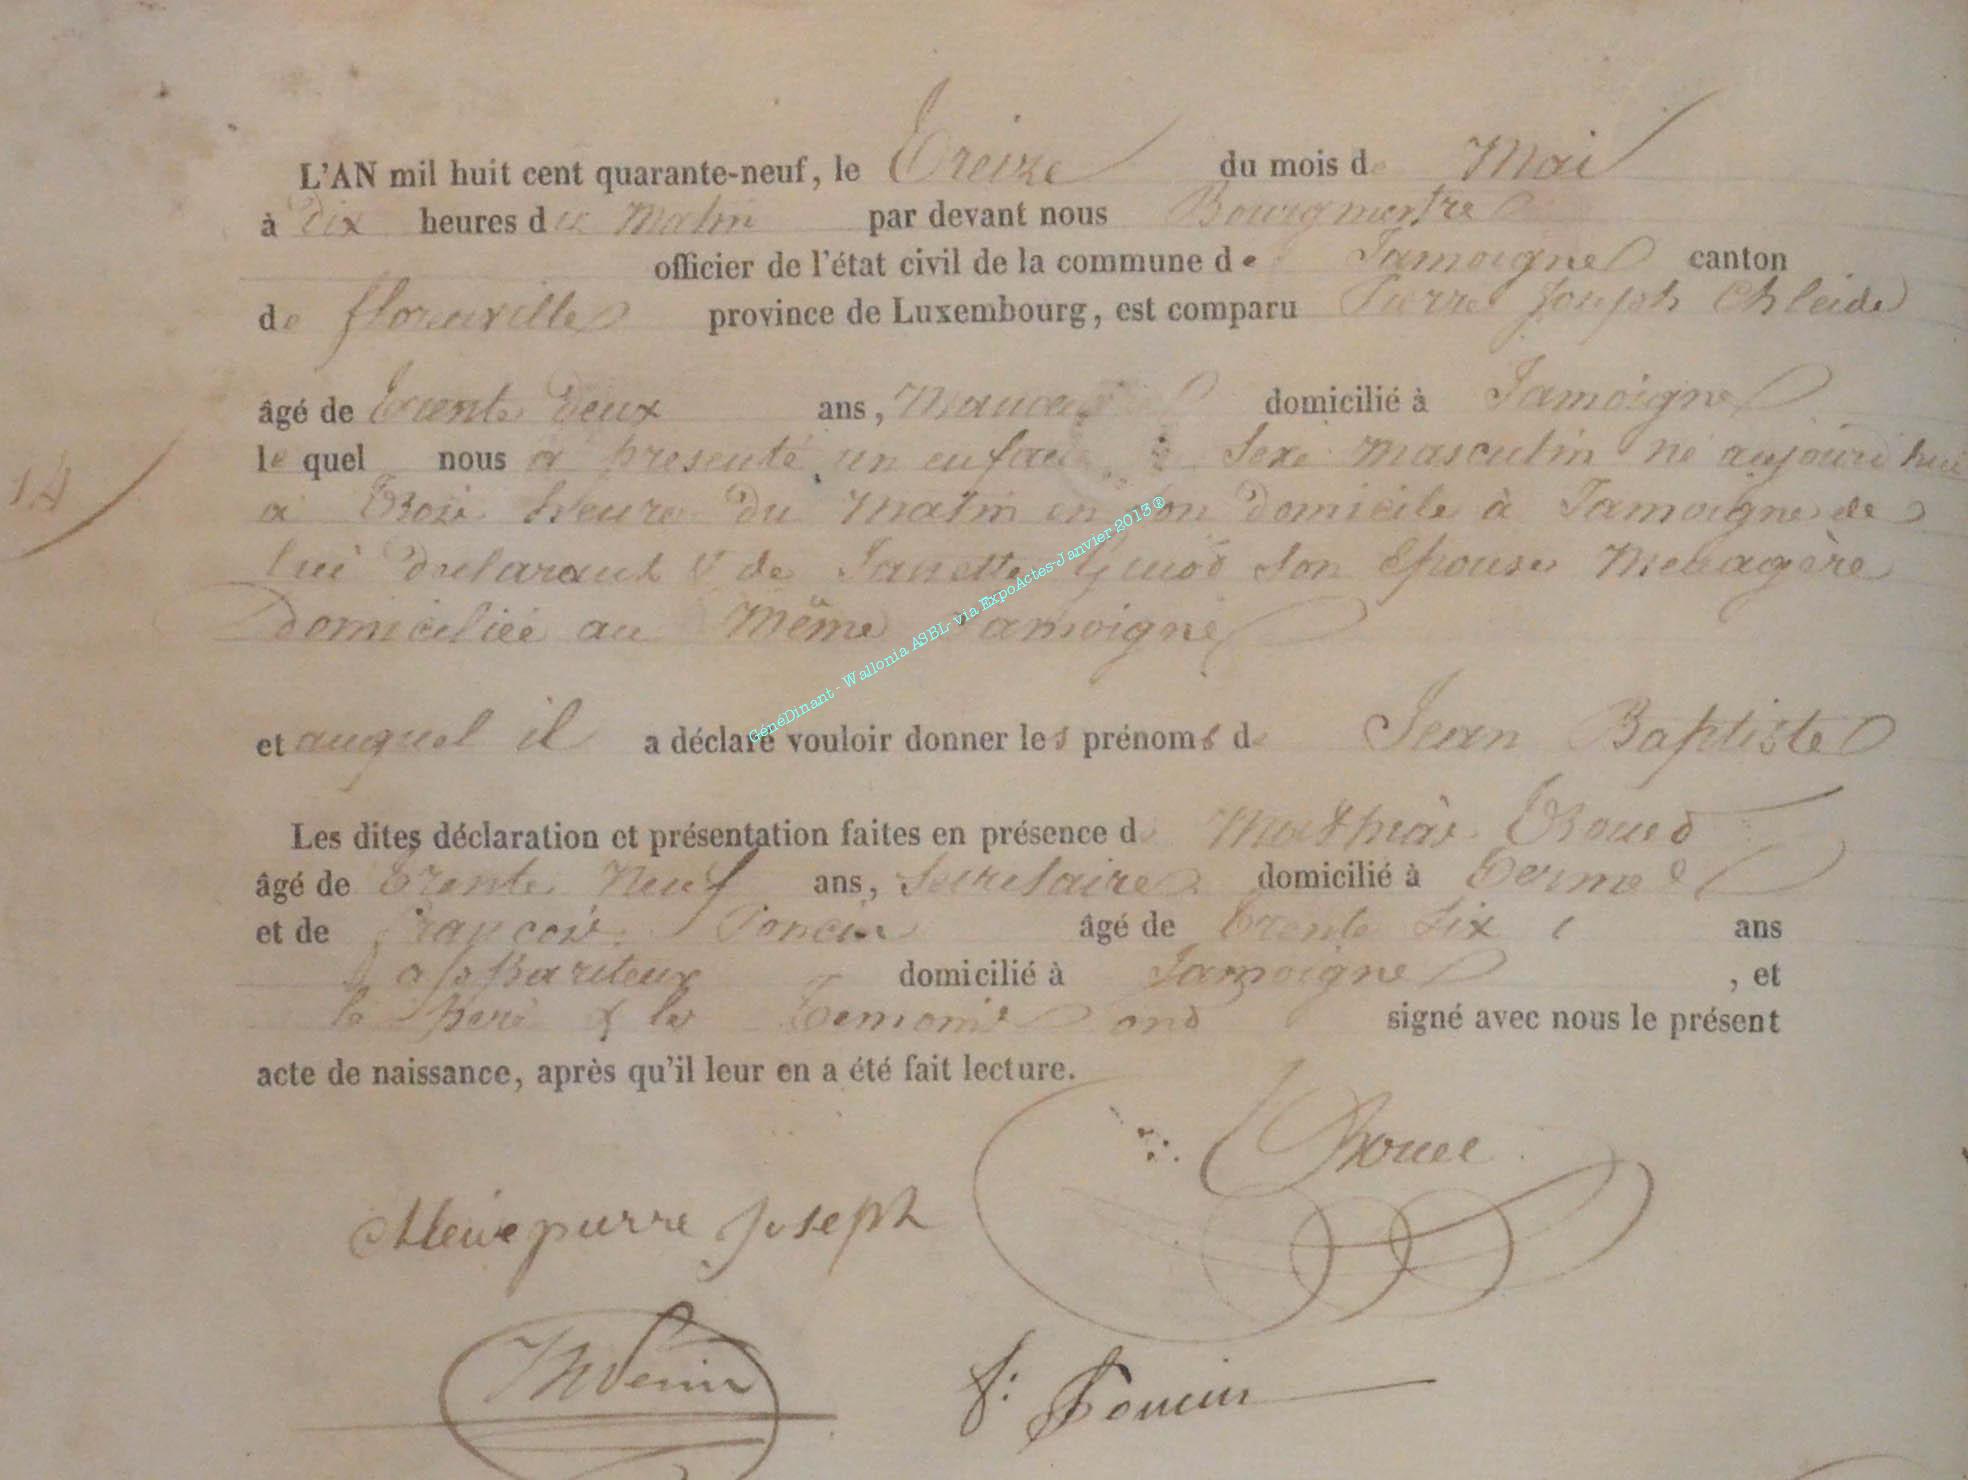 L'AN mil huit cent quarante-neuf, le Treize du mois de Mai
à Dix heures du Matin par devant nous Bourgmestre
officier de l'état civil de la commune de Jamoigne canton
de florenville province de Luxembourg, est comparu Pierre Joseph Chleide
âgé de Trente Deux ans, domicilié à Jamoigne
le quel nous a presenté un enfant Sexe masculin né aujourd'hui
14
a Trois heure du Matin en son domicile à Jamoigne de
lui Déclarant & de Janette son Epouse Menagère
domiciliée au Même Jamoigne
et auquel il a déclaré vouloir donner les prénoms de Jean Baptiste
Les dites déclaration et présentation faites en présence d Mathias
âgé de Trente Neuf ans, Secretaire domicilié à Termes
et de françois Poncin âgé de Trente Six ans
appariteur domicilié à Jamoigne , et
le Pere & les Temoins ond signé avec nous le présent
acte de naissance, après qu'il leur en a été fait lecture.
pierre Joseph
f: Poncin
GénéDinant - Wallonia ASBL- via ExpoActes-Janvier 2013®